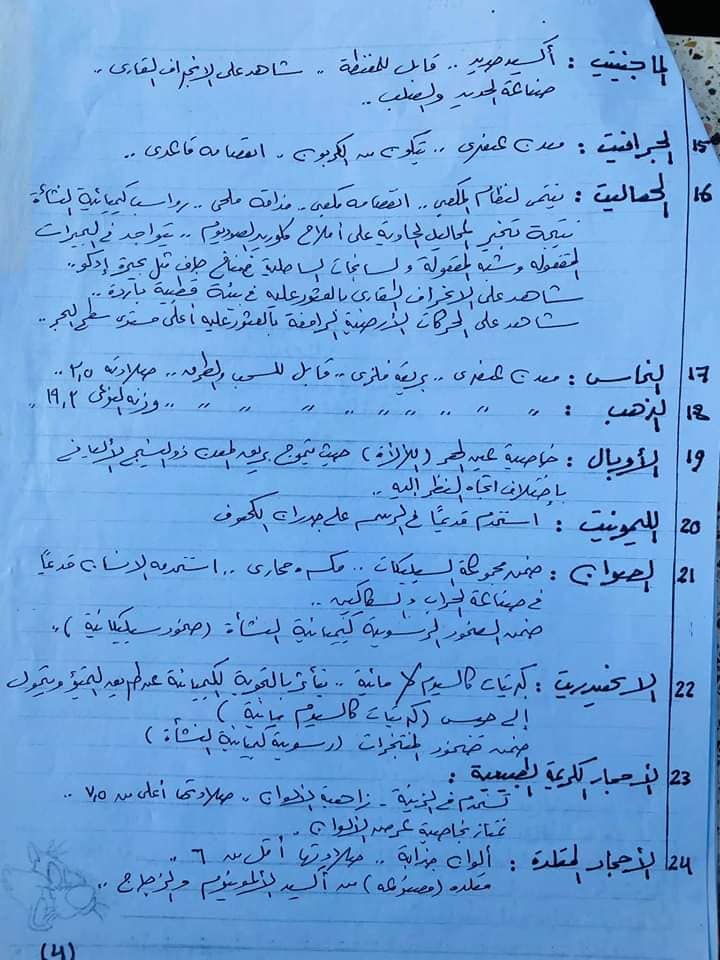 الماجنتيت : أكسيد حديد .. قابل للمغنطة .. شاهد على الانجراف القارى ..
صناعة الحديد والصلب ..
15 الجرافيت : معدن عنصرى .. يتكون من الكربون .. انفصامه قاعدى ..
16 الهاليت : ينتمى لنظام المكعبى .. انفصامه مكعبى .. مذاقه ملحى .. رواسب كيميائية النشأة
نتيجة تبخير المحاليل الحاوية على أملاح كلوريد الصوديوم .. يتواجد فى البحيرات
المقفولة وشبه المقفولة والسبخات الساحلية فى مناخ جاف مثل بحيرة إدكو ..
شاهد على الانجراف القارى بالعثور عليه فى بيئة قطبية باردة ..
شاهد على الحركات الأرضية الرافعة بالعثور عليه أعلى مستوى سطح البحر ..
17 النحاس : معدن عنصرى .. بريقه فلزى .. قابل للسحب والطرق .. صلادته ٣,٥ ..
18 الذهب : " " " " " " " " " .. وزنه النوعى ١٩,٣ ..
19 الأوبال : خاصية عين الهر (اللألأة) حيث يتموج بريق المعدن ذو النسيج الأليافى
بإختلاف اتجاه النظر اليه ..
20 الليمونيت : استخدم قديمًا فى الرسم على جدران الكهوف
21 الصوان : ضمن مجموعة السيليكات .. مكسره محارى .. استخدمه الانسان قديمًا
فى صناعة الحراب والسكاكين ..
ضمن الصخور الرسوبية كيميائية النشأة (صخور سيليكاتية) ..
22 الانهيدريت : كبريتات كالسيوم لا مائية .. يتأثر بالتجوية الكيميائية عن طريق التميؤ ويتحول
إلى جبس (كبريتات كالسيوم مائية)
ضمن صخور المتبخرات (رسوبية كيميائية النشأة)
23 الأحجار الكريمة الطبيعية :
تستخدم فى الزينة - زاهية الألوان .. صلادتها أعلى من ٧,٥ ..
تمتاز بخاصية عرض الألوان .
24 الأحجار المقلدة : ألوان جذابة .. صلادتها أقل من ٦ ..
مقلده (مصنوعه) من أكسيد الألومنيوم والزجاج ..
(4)